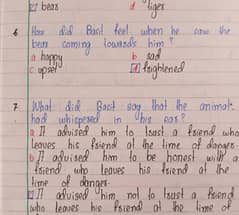 bear d tiger
6 How did Basit feel when he saw the
bear coming towards him?
a happy b sad
c upset d frightened
7 What did Basit say that the animal
had whispered in his ear?
a It advised him to trust a friend who
leaves his friend at the time of danger.
b It advised him to be honest with a
friend who leaves his friend at the
time of danger.
It advised him not to trust a friend
who leaves his friend at the time of